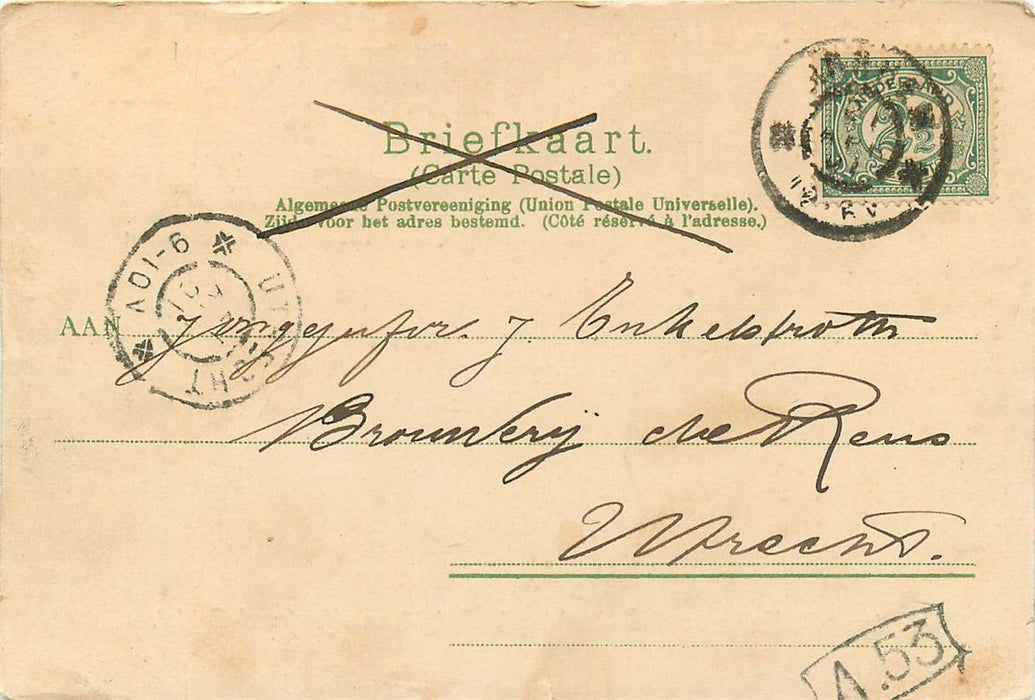 Briefkaart.
(Carte Postale)
Algemeene Postvereeniging (Union Postale Universelle).
Zijde voor het adres bestemd. (Côté réservé à l'adresse.)
NEDERLAND
2½
UTRECHT
6-10V
AAN Jongejufvr. J. Enkelstroth
Brouwerij de Rens
Utrecht.
A.53